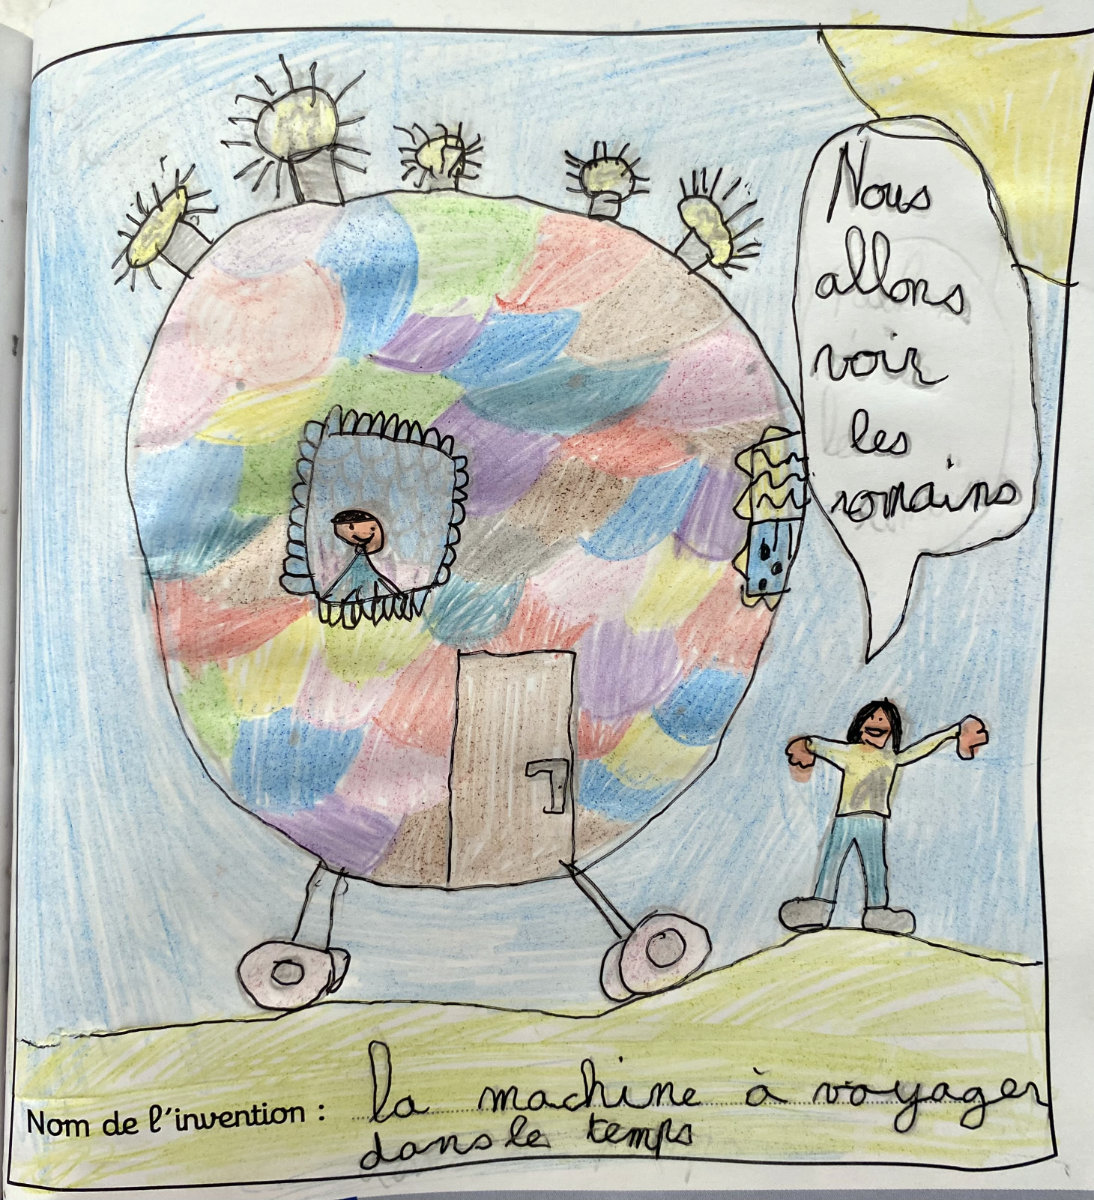 Nous
allons
voir
les
romains
Nom de l'invention : la machine à voyager
dans le temps